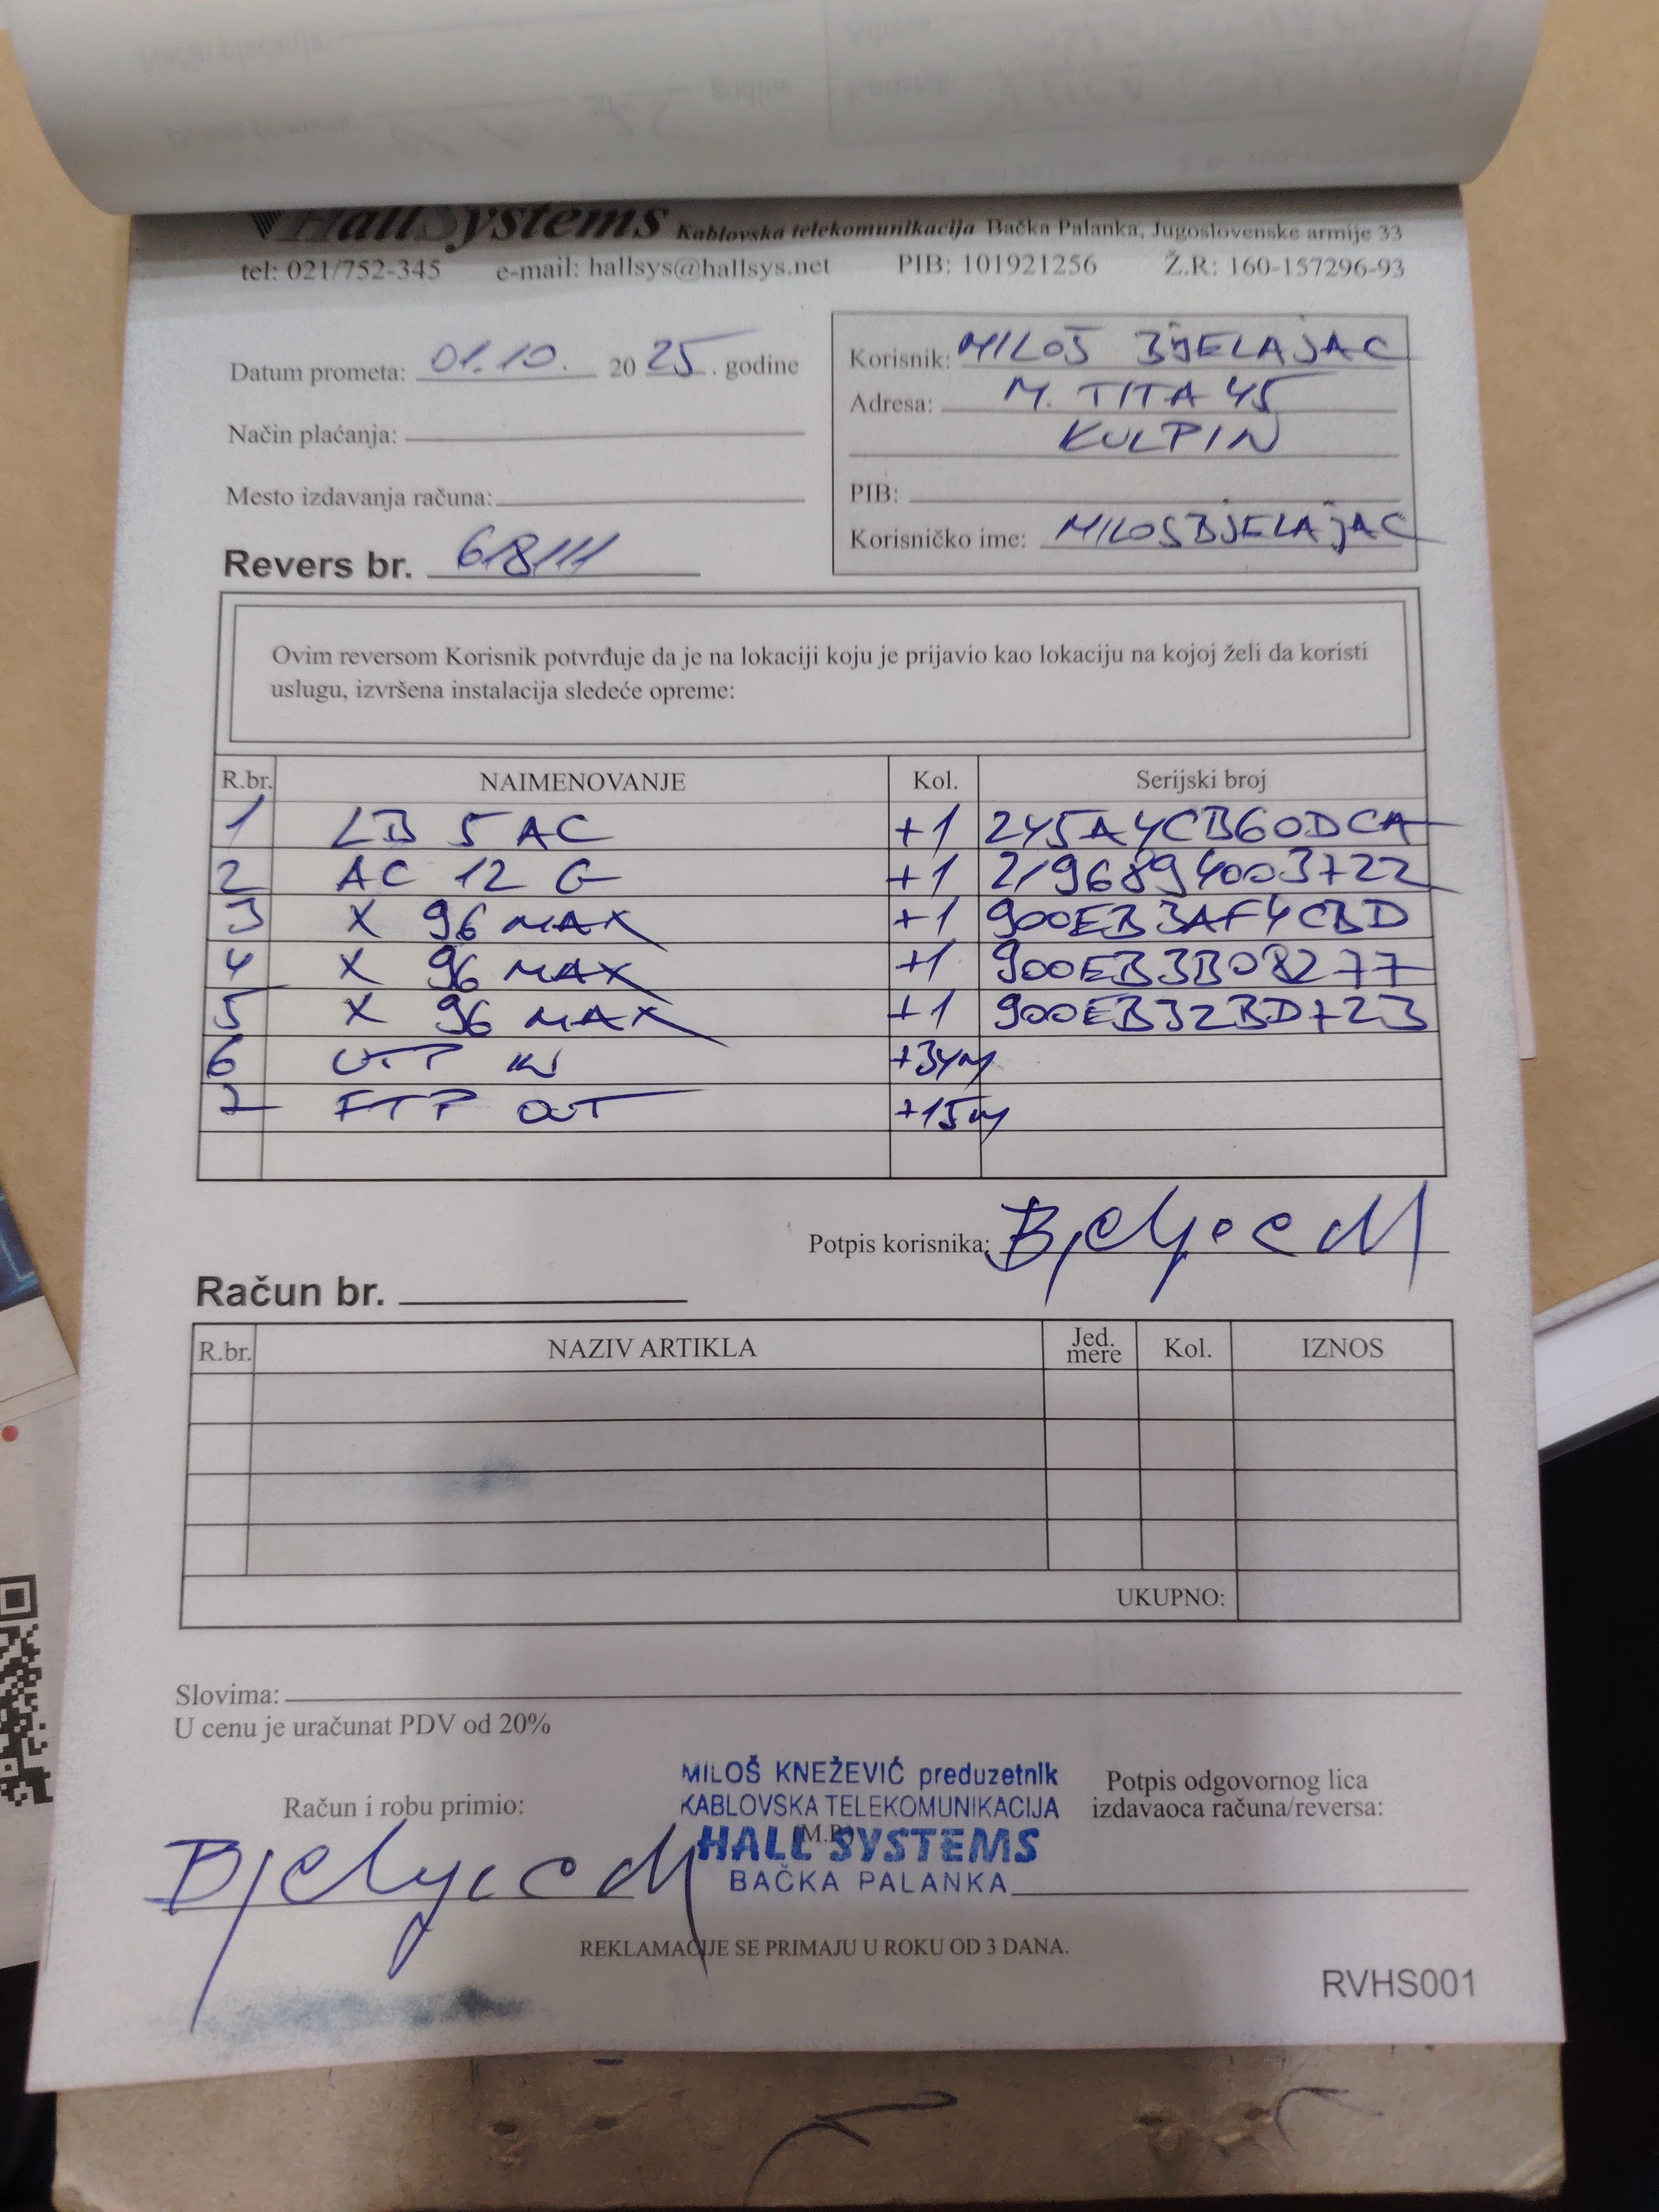 HallSystems Kablovska telekomunikacija Bačka Palanka, Jugoslovenske armije 33
tel: 021/752-345 e-mail: hallsys@hallsys.net PIB: 101921256 Ž.R: 160-157296-93
Datum prometa: 01.10. 2025. godine
Način plaćanja:
Mesto izdavanja računa:
Revers br. 618111
Korisnik: MILOŠ BJELAJAC
Adresa: M. TITA 45
KULPIN
PIB:
Korisničko ime: MILOSBJELAJAC
Ovim reversom Korisnik potvrđuje da je na lokaciji koju je prijavio kao lokaciju na kojoj želi da koristi
uslugu, izvršena instalacija sledeće opreme:
R.br. NAIMENOVANJE Kol. Serijski broj
1 LB 5 AC +1 245A4CB60DCA
2 AC 12 G +1 2196894003722
3 X 96 MAX +1 900EB3AF4CBD
4 X 96 MAX +1 900EB3B08277
5 X 96 MAX +1 900EB32BD723
6 UTP IN +34m
7 FTP OUT +15m
Potpis korisnika:
Račun br.
R.br. NAZIV ARTIKLA Jed. mere Kol. IZNOS
UKUPNO:
Slovima:
U cenu je uračunat PDV od 20%
Račun i robu primio:
MILOŠ KNEŽEVIĆ preduzetnik
KABLOVSKA TELEKOMUNIKACIJA
(M.P.)
HALL SYSTEMS
BAČKA PALANKA
Potpis odgovornog lica
izdavaoca računa/reversa:
REKLAMACIJE SE PRIMAJU U ROKU OD 3 DANA.
RVHS001